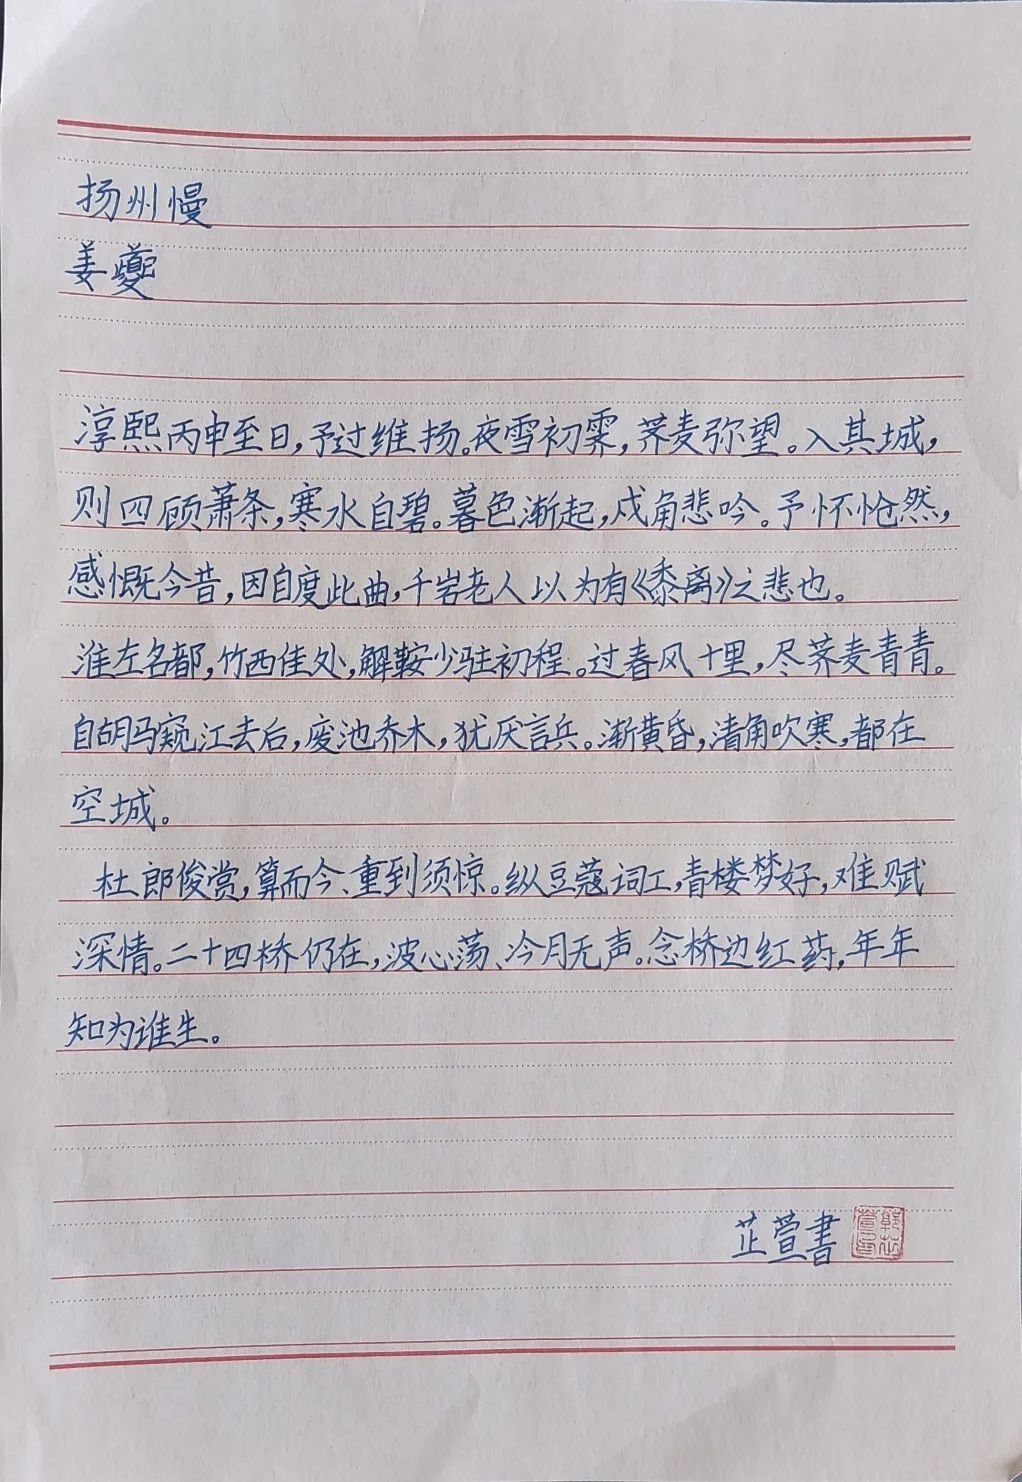 扬州慢
姜夔
淳熙丙申至日,予过维扬。夜雪初霁,荠麦弥望。入其城,
则四顾萧条,寒水自碧。暮色渐起,戍角悲吟。予怀怆然,
感慨今昔,因自度此曲,千岩老人以为有《黍离》之悲也。
淮左名都,竹西佳处,解鞍少驻初程。过春风十里,尽荠麦青青。
自胡马窥江去后,废池乔木,犹厌言兵。渐黄昏,清角吹寒,都在
空城。
杜郎俊赏,算而今、重到须惊。纵豆蔻词工,青楼梦好,难赋
深情。二十四桥仍在,波心荡、冷月无声。念桥边红药,年年
知为谁生。
芷萱書